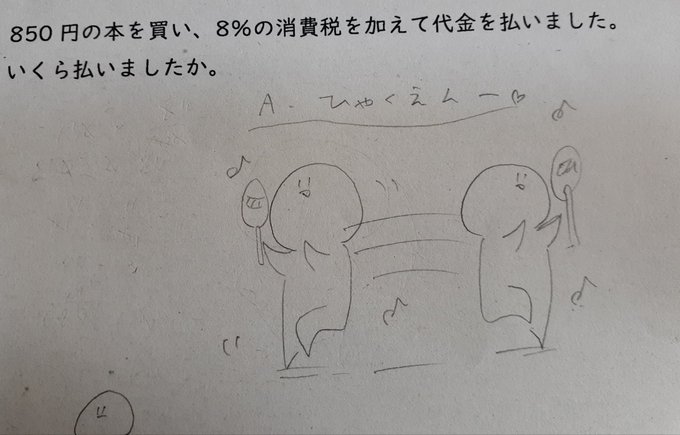 850円の本を買い、8%の消費税を加えて代金を払いました。
いくら払いましたか。
A. ひゃくえんー♡